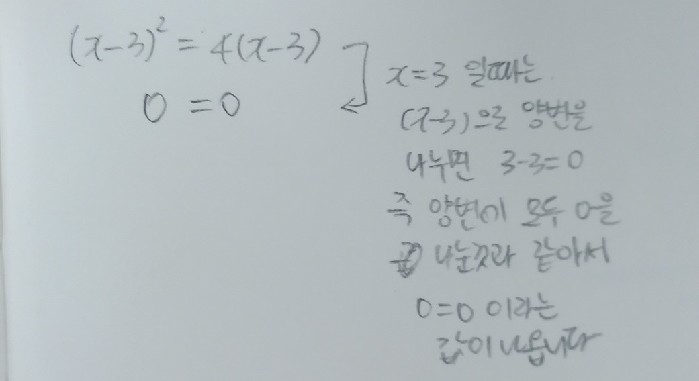 (x-3)² = 4(x-3)
0 = 0
x=3 일때는
(x-3)으로 양변을
나누면 3-3=0
즉 양변이 모두 0을
나눈것과 같아서
0=0 이라는
값이 나옵니다